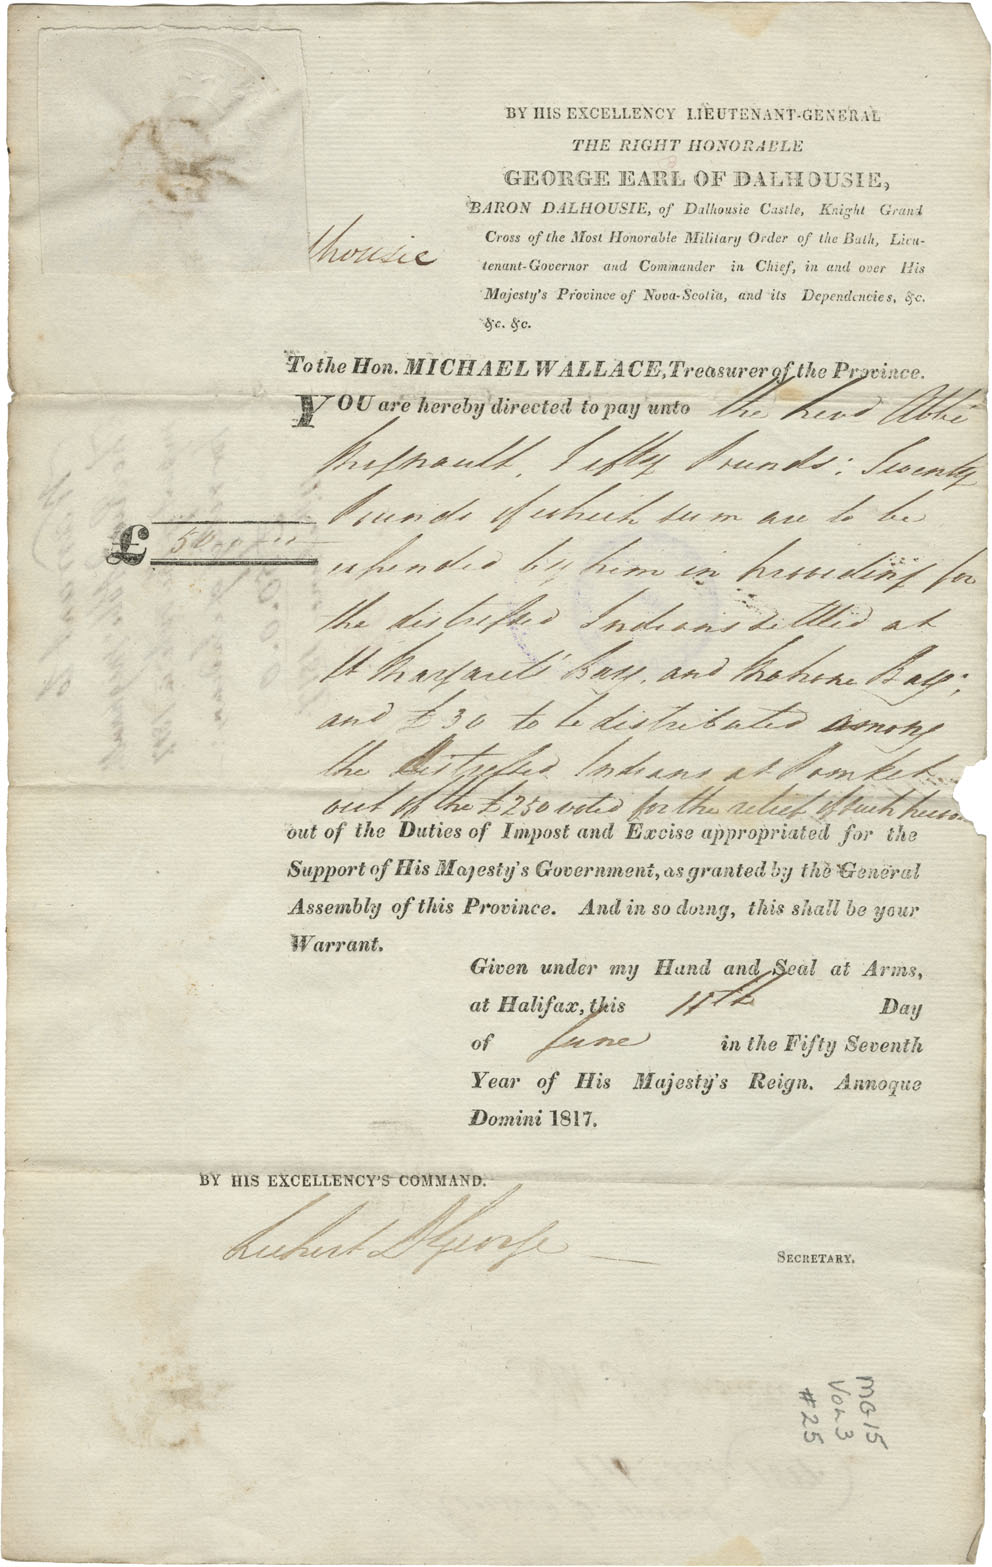 BY HIS EXCELLENCY LIEUTENANT-GENERAL
THE RIGHT HONORABLE
GEORGE EARL OF DALHOUSIE,
BARON DALHOUSIE, of Dalhousie Castle, Knight Grand
Cross of the Most Honorable Military Order of the Bath, Lieu-
tenant-Governor and Commander in Chief, in and over His
Majesty's Province of Nova-Scotia, and its Dependencies, &c.
&c. &c.
housie
To the Hon. MICHAEL WALLACE, Treasurer of the Province.
YOU are hereby directed to pay unto the Revd Abbé
Fifty Pounds: Twenty
Pounds of which sum are to be
£ 50
expended by him in providing for
the distressed Indians settled at
St Margarets Bay, and Mahone Bay;
and £30 to be distributed among
the Distressed Indians at Pomket
out of the £250 voted for the relief of such
out of the Duties of Impost and Excise appropriated for the
Support of His Majesty's Government, as granted by the General
Assembly of this Province. And in so doing, this shall be your
Warrant.
Given under my Hand and Seal at Arms,
at Halifax, this 11th Day
of June in the Fifty Seventh
Year of His Majesty's Reign. Annoque
Domini 1817.
BY HIS EXCELLENCY'S COMMAND.
Rupert D George
SECRETARY.
MG 15
Vol 3
#25